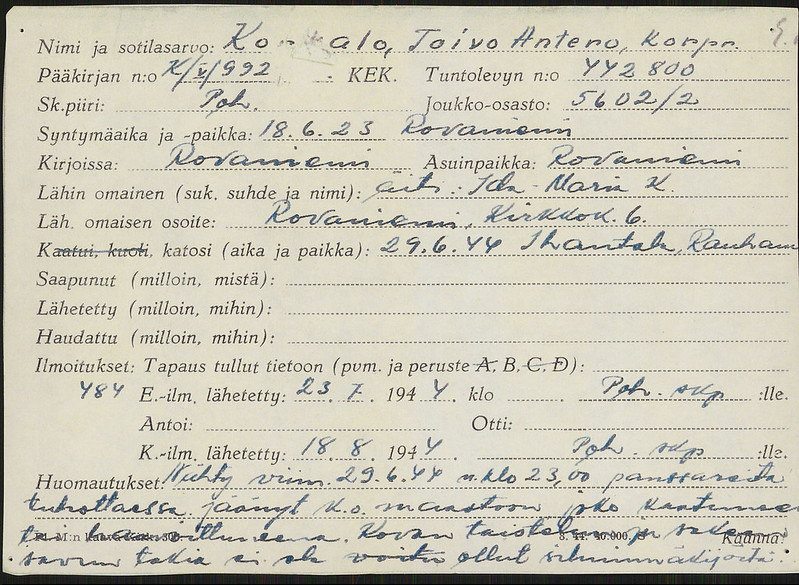 Nimi ja sotilasarvo: Toivo Antero, korpr.
Pääkirjan n:o K/V/992 KEK. Tuntolevyn n:o 442800
Sk.piiri: Poh. Joukko-osasto: 5602/2
Syntymäaika ja -paikka: 18.6.23 Rovaniemi
Kirjoissa: Rovaniemi Asuinpaikka: Rovaniemi
Lähin omainen (suk. suhde ja nimi): äiti: Ida-Maria K.
Läh. omaisen osoite: Rovaniemi, Kirkkok. 6.
Kaatui, kuoli, katosi (aika ja paikka): 29.6.44 Ihantala,
Saapunut (milloin, mistä):
Lähetetty (milloin, mihin):
Haudattu (milloin, mihin):
Ilmoitukset: Tapaus tullut tietoon (pvm. ja peruste A, B, C, D):
484 E.-ilm. lähetetty: 23.7.1944. klo Poh. skp :lle.
Antoi: Otti:
K.-ilm. lähetetty: 18.8.1944. Poh. skp :lle.
Huomautukset: Nähty viim. 29.6.44 n. klo 23,00 panssareita
tuhottaessa jäänyt k.o. maastoon joko kaatuneena
tai haavoittuneena. Kovan taistelun ja
savun takia ei ole voitu ollut
Käännä!